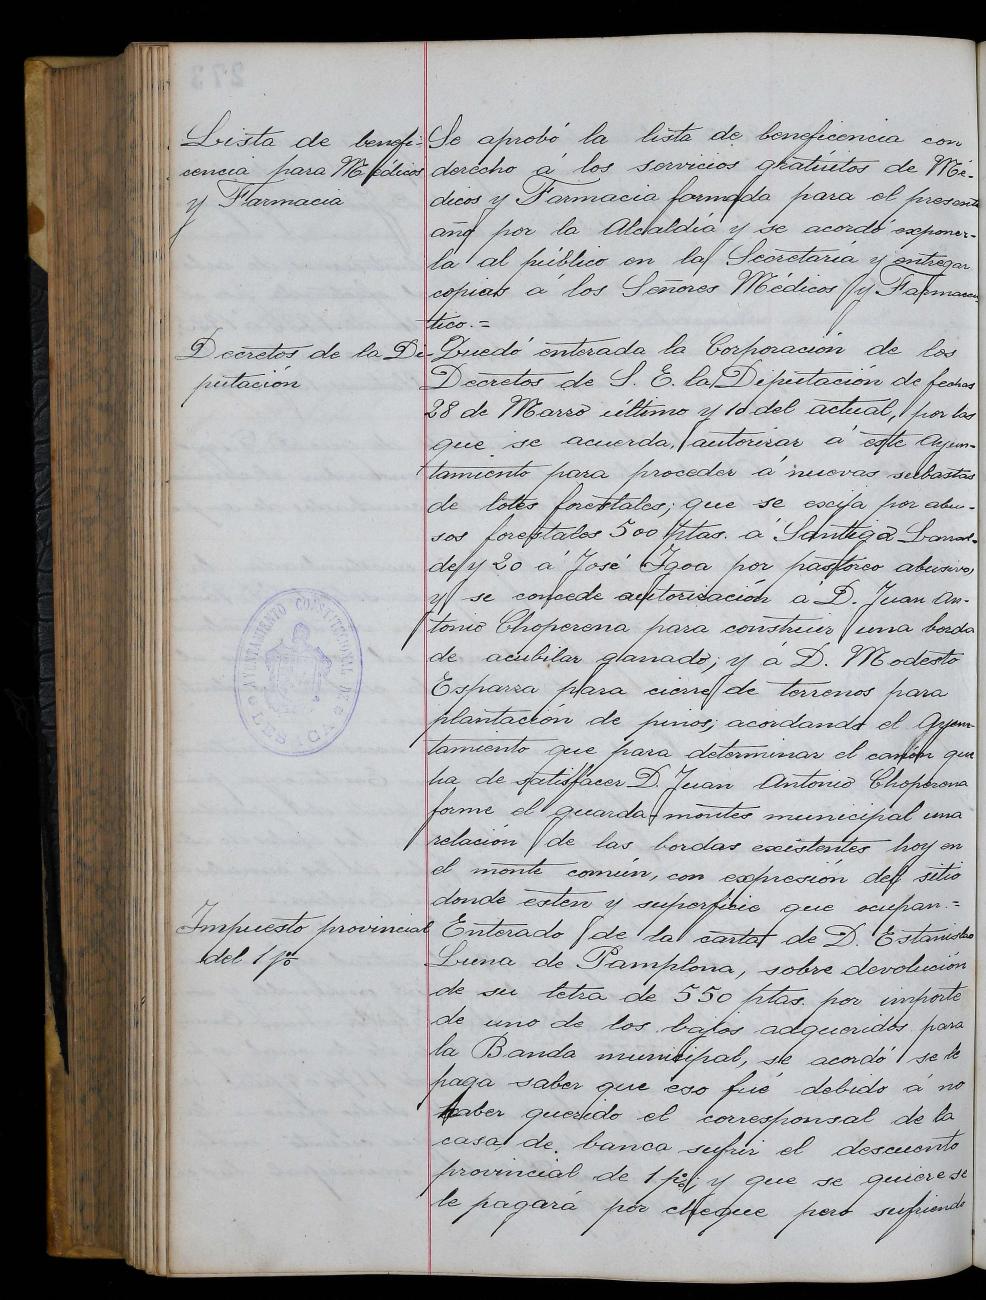 Lista de benefi-
cencia para Médicos
y Farmacia
Se aprobó la lista de beneficencia con
derecho á los servicios gratuitos de Mé-
dicos y Farmacia formada para el presente
año por la Alcaldía y se acordó exponer-
la al público en la Secretaría y entregar
copias a los Señores Médicos y Farmaceu
tico.=
Decretos de la Di-
putación
Quedó enterada la Corporación de los
Decretos de S. E. la Diputación de fechas
28 de Marzo último y 10 del actual, por los
que se acuerda, autorizar á este Ayun-
tamiento para proceder á nuevas subastas
de lotes forestales; que se exija por abu-
sos forestales 500 ptas. á Santiga
de y 20 á José Igoa por pastoreo abusivo,
y se concede autorización á D. Juan An-
tonio Choperena para construir una borda
de acubilar ganado; y á D. Modesto
Esparza para cierre de terrenos para
plantación de pinos; acordando el Ayun-
tamiento que para determinar el canón que
ha de satisfacer D. Juan Antonio Choperena
forme el guarda-montes municipal una
relación de las bordas existentes hoy en
el monte común, con expresión del sitio
donde esten y superficie que ocupan.=
Impuesto provincial
del 1 p%
Enterado de la carta de D. Estanislao
Luna de Pamplona, sobre devolución
de su letra de 550 ptas. por importe
de uno de los bajos adqueridos para
la Banda municipal, se acordó se le
haga saber que eso fué debido á no
haber querido el corresponsal de la
casa de banca sufrir el descuento
provincial de 1 p%; y que se quiere se
le pagará por cheque pero sufriendo
AYUNTAMIENTO CONSTITUCIONAL DE
LESACA
273